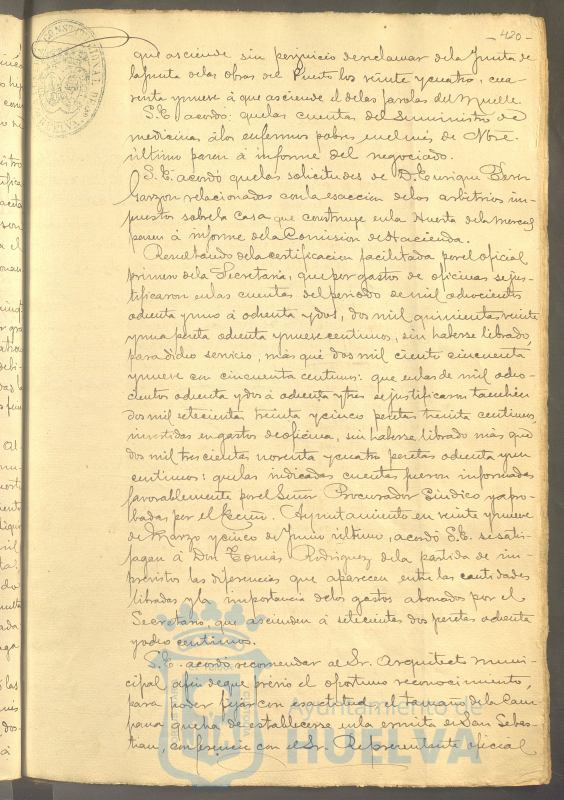 - 420 -
que asciende sin perjuicio de reclamar de la Junta de
la Junta de las obras del Puerto los veinte y cuatro, cua-
renta y nueve á que asciende el de las farolas del Muelle.
S.E. acordó: que las cuentas del suministro de
medicinas á los enfermos pobres en el mes de Nbre.
último pasen á informe del negociado.
S.E. acordó que las solicitudes de D. Enrique
Garzon relacionadas con la esaccion de los arbitrios im-
puestos sobre la casa que construye en la Huerta de la Merced
pasen á informe de la Comision de Hacienda.
Resultando de la certificacion facilitada por el oficial
primero de la Secretaría, que por gastos de oficinas se jus-
tificaron en las cuentas del periodo de mil ochocientos
ochenta y uno á ochenta y dos, dos mil quinientas veinte
y una peseta ochenta y nueve centimos, sin haberse librado
para dicho servicio, más que dos mil ciento cincuenta
y nueve con cincuenta centimos: que en las de mil ocho-
cientos ochenta y dos á ochenta y tres se justificaron tambien
dos mil setecientas treinta y cinco pesetas treinta centimos,
invertidas en gastos de oficina, sin haberse librado más que
dos mil trescientas noventa y cuatro pesetas ochenta y un
centimos: que las indicadas cuentas fueron informadas
favorablemente por el Señor Procurador Síndico y apro-
badas por el Excmo. Ayuntamiento en veinte y nueve
de Marzo y cinco de Junio último, acordó S.E. se sati-
fagan á Don Tomás Rodriguez de la partida de im-
previstos las diferencias que aparecen entre las cantidades
libradas y la importancia de los gastos abonados por el
Secretario, que ascienden á setecientas dos pesetas ochenta
y ocho centimos.
S.E. acordó recomendar al Sr. Arquitecto muni-
cipal afin de que prévio el oportuno reconocimiento,
para poder fijar con esactitud el tamaño de la Cam
pana que ha de establecerse en la ermita de San Sebas-
tian, conferencie con el Sr. Representante oficial
Ayuntamiento de
HUELVA